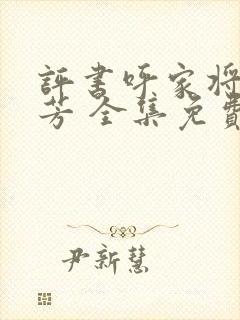 評書呼家将
芳 全集免費
尹新慧